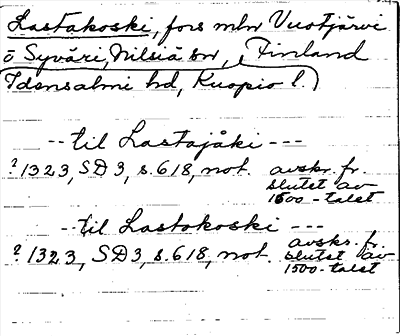 Lastakoski, fors mln Vuotjärvi
o Syväri, Nilsiä sn, (Finland
Idensalmi hd, Kuopio l.)
-- til Lastajåki ---
? 1323, SD 3, s. 618, not. avskr. fr.
slutet av
1500-talet
-- til Lastakoski ---
? 1323, SD 3, s. 618, not. avskr. fr.
slutet av
1500-talet